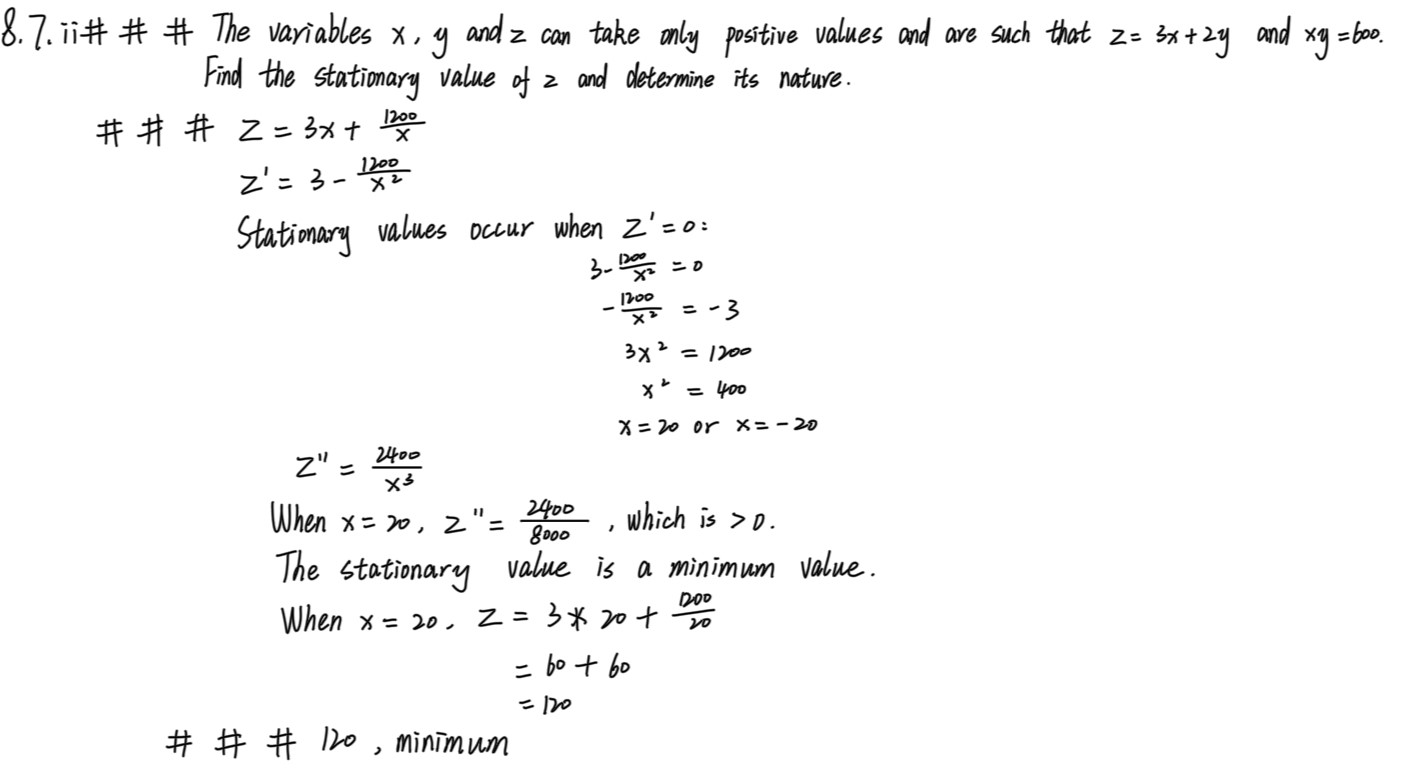 8.7.ii# # # The variables x, y and z can take only positive values and are such that z = 3x + 2y and xy = 600.
Find the stationary value of z and determine its nature.
# # # Z = 3x + 1200/x
Z' = 3 - 1200/x²
Stationary values occur when Z' = 0:
3 - 1200/x² = 0
- 1200/x² = -3
3x² = 1200
x² = 400
x = 20 or x = -20
Z" = 2400/x³
When x = 20, z" = 2400/8000, which is > 0.
The stationary value is a minimum value.
When x = 20, Z = 3 * 20 + 1200/20
= 60 + 60
= 120
# # # 120, minimum